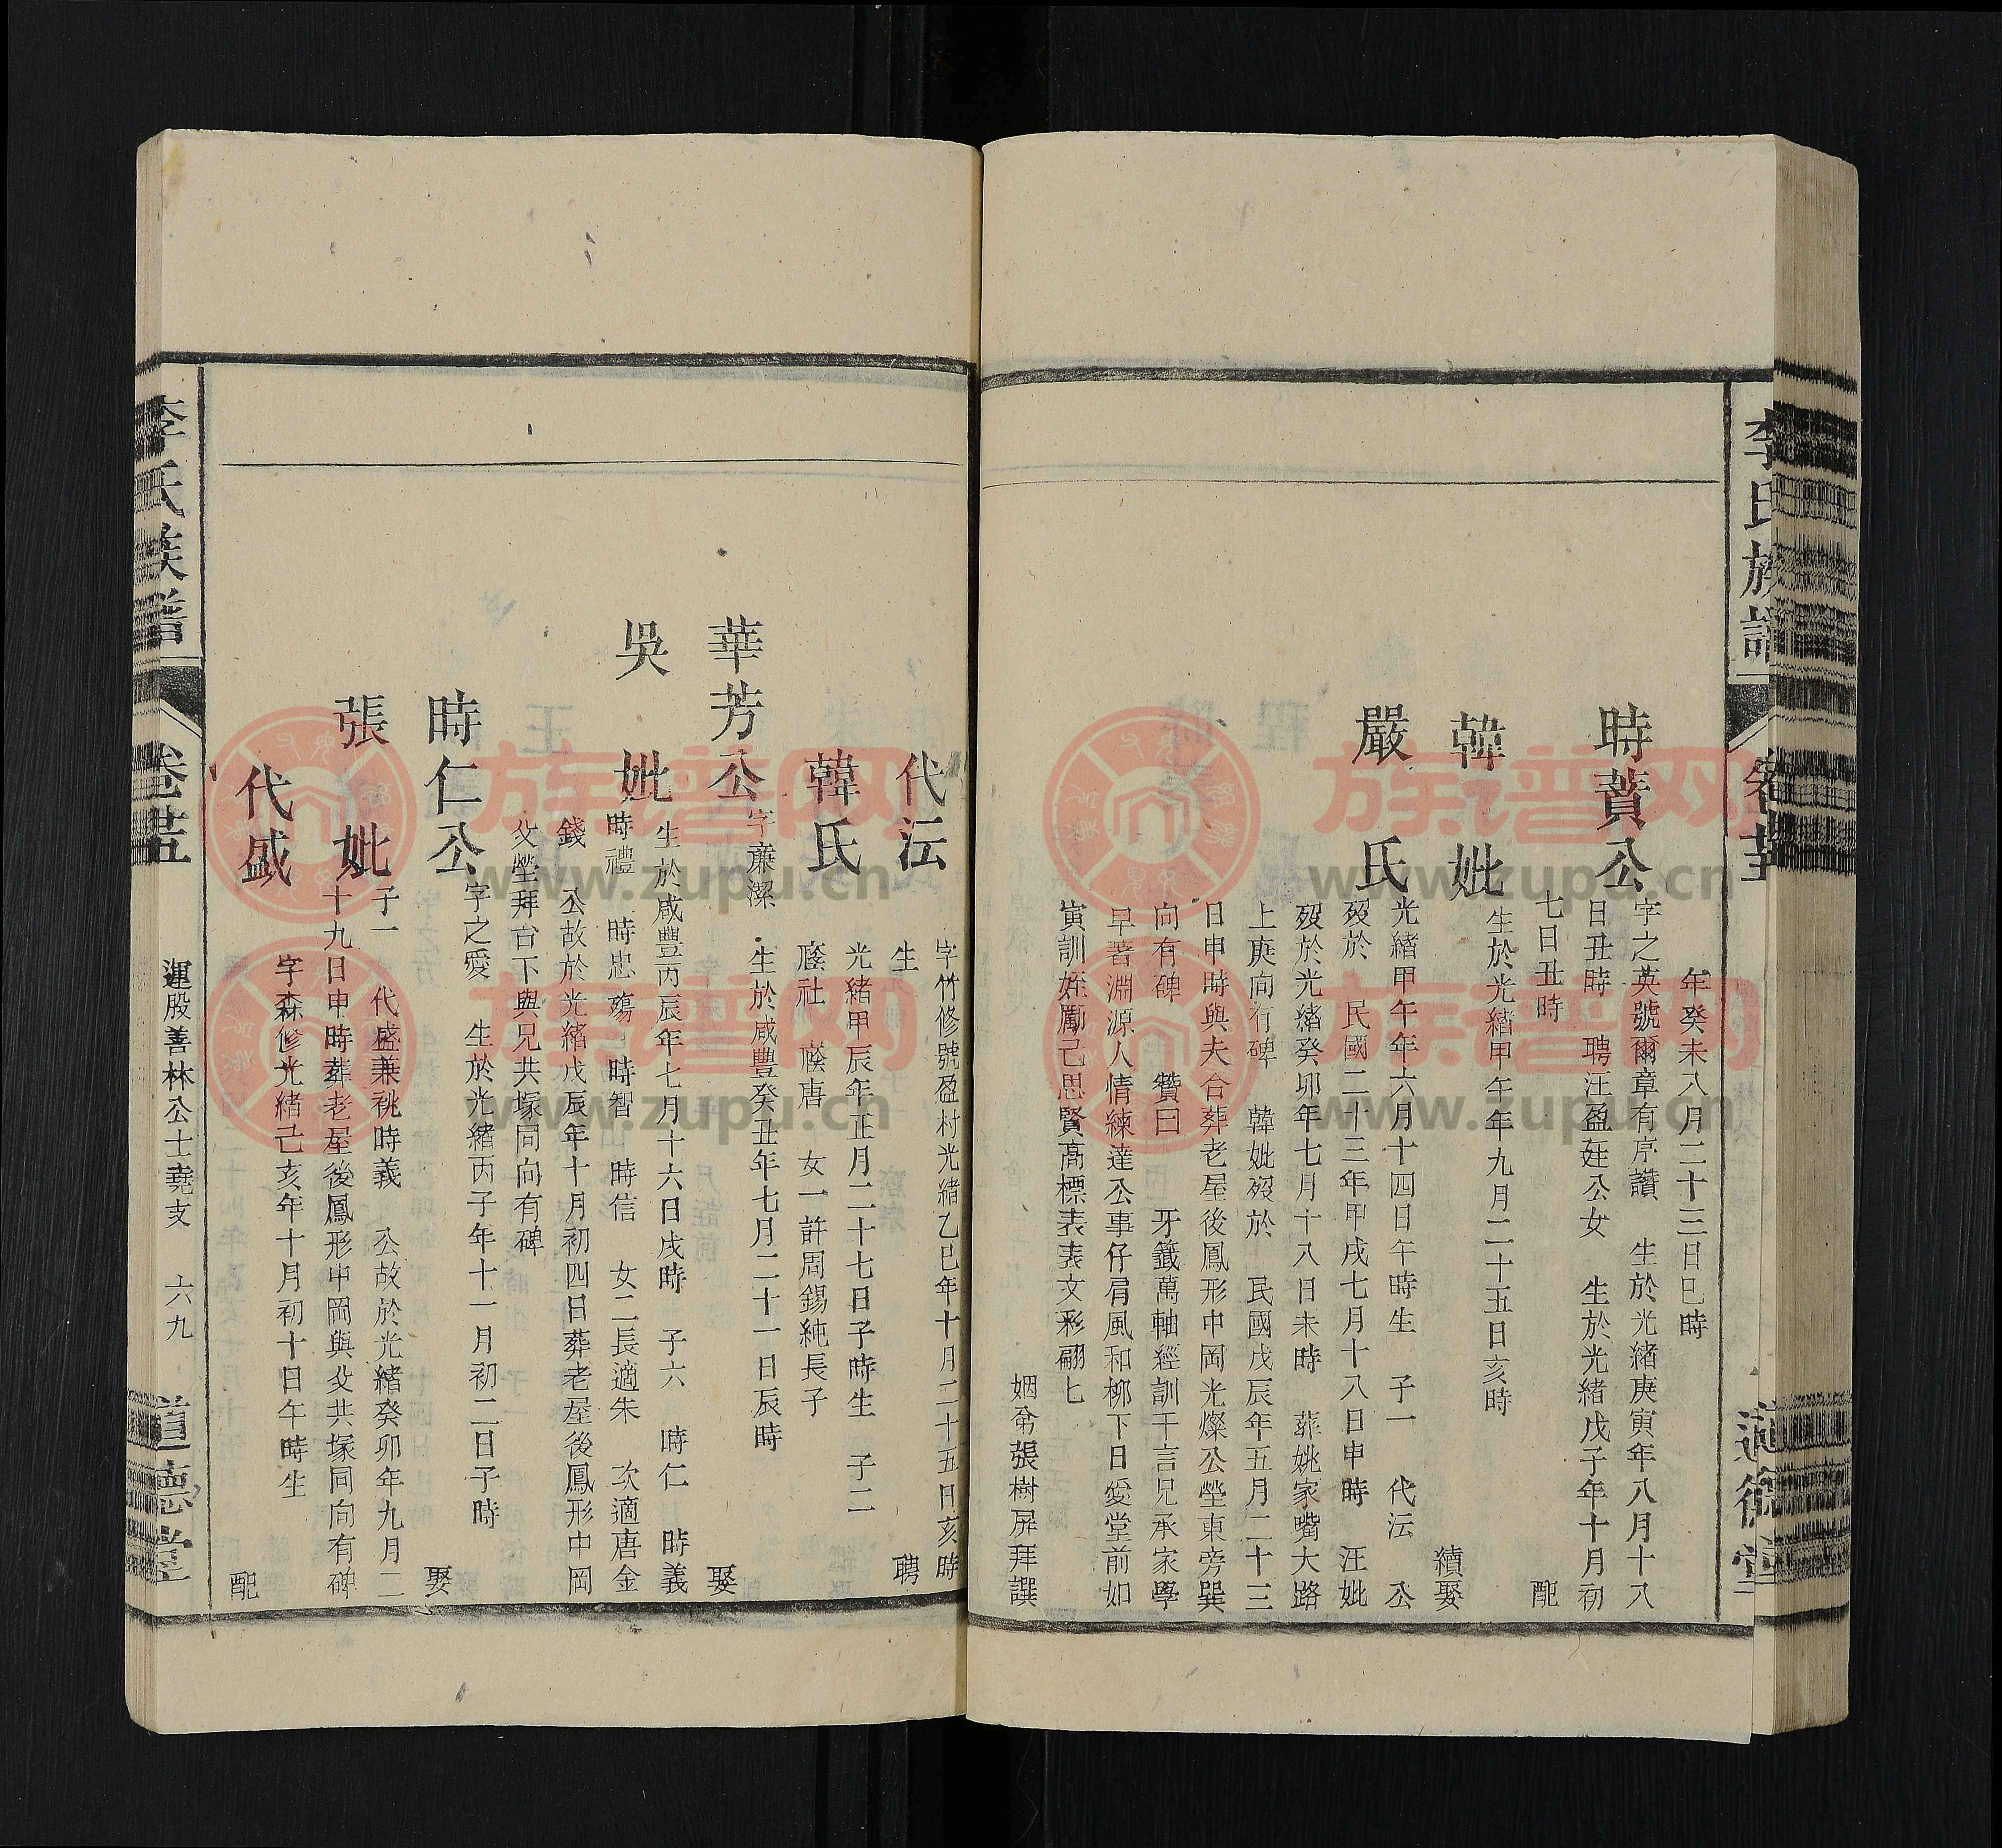 李氏族譜
道德堂
年癸未八月二十三日巳時
時蕡公
字之英號爾章有序讚 生於光緒庚寅年八月十八
日丑時 聘汪盈廷公女 生於光緒戊子年十月初
七日丑時 配
韓 妣
生於光緒甲午年九月二十五日亥時
續娶
嚴 氏
光緒甲午年六月十四日午時生 子一 代沄 公
歿於 民國二十三年甲戌七月十八日申時 汪妣
歿於光緒癸卯年七月十八日未時 葬姚家嘴大路
上庚向有碑 韓妣歿於 民國戊辰年五月二十三
日申時與夫合葬老屋後鳳形中岡光燦公塋東旁巽
向有碑 贊曰 牙籤萬軸經訓千言兄承家學
早著淵源人情練達公事仔肩風和柳下日愛堂前如
寅訓姪勵己思賢高標表表文彩翩七
姻弟張樹屏拜譔
代沄
字竹修號盈村光緒乙巳年十月二十五日亥時
生 聘
韓氏
光緒甲辰年正月二十七日子時生 子二
蔭社 蔭唐 女一許周錫純長子
華芳公
字廉潔 生於咸豐癸丑年七月二十一日辰時
娶
吳 妣
生於咸豐丙辰年七月十六日戌時 子六 時仁 時義
時禮 時忠殤 時智 時信 女二長適朱 次適唐金
錢 公故於光緒戊辰年十月初四日葬老屋後鳳形中岡
父塋拜台下與兄共塚同向有碑
時仁公
字之愛 生於光緒丙子年十一月初二日子時
娶
張 妣
子一 代盛兼祧時義 公故於光緒癸卯年九月二
十九日申時葬老屋後鳳形中岡與父共塚同向有碑
代盛
字森修光緒己亥年十月初十日午時生
配
李氏族譜
卷廿五
運股善林公士堯支 六九
道德堂
族谱网
www.zupu.cn
族谱网
www.zupu.cn
族谱网
www.zupu.cn
族谱网
www.zupu.cn